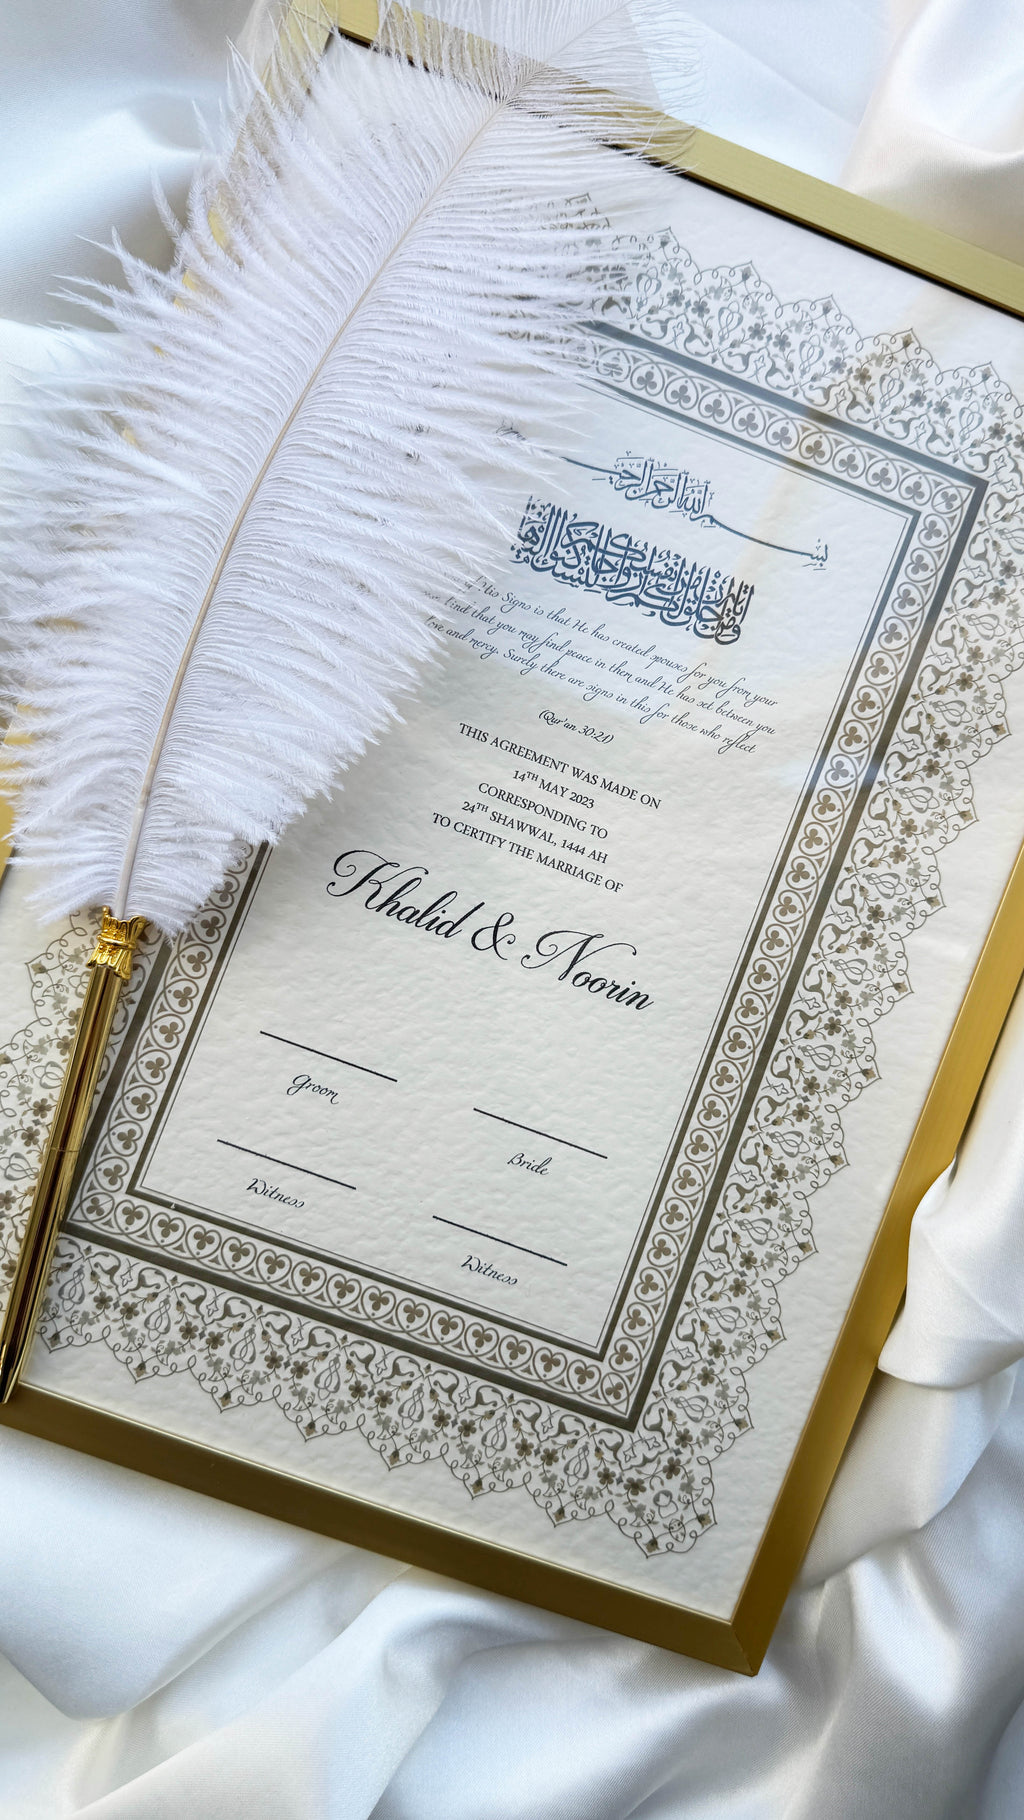 بسم الله الرحمن الرحيم
ومن آياته أن خلق لكم من أنفسكم أزواجا لتسكنوا إليها
His Signs is that He has created spouses for you from your
kind that you may find peace in them and He has set between you
love and mercy. Surely there are signs in this for those who reflect
(Qur'an 30:21)
THIS AGREEMENT WAS MADE ON
14TH MAY 2023
CORRESPONDING TO
24TH SHAWWAL, 1444 AH
TO CERTIFY THE MARRIAGE OF
Khalid & Noorin
Groom
Bride
Witness
Witness